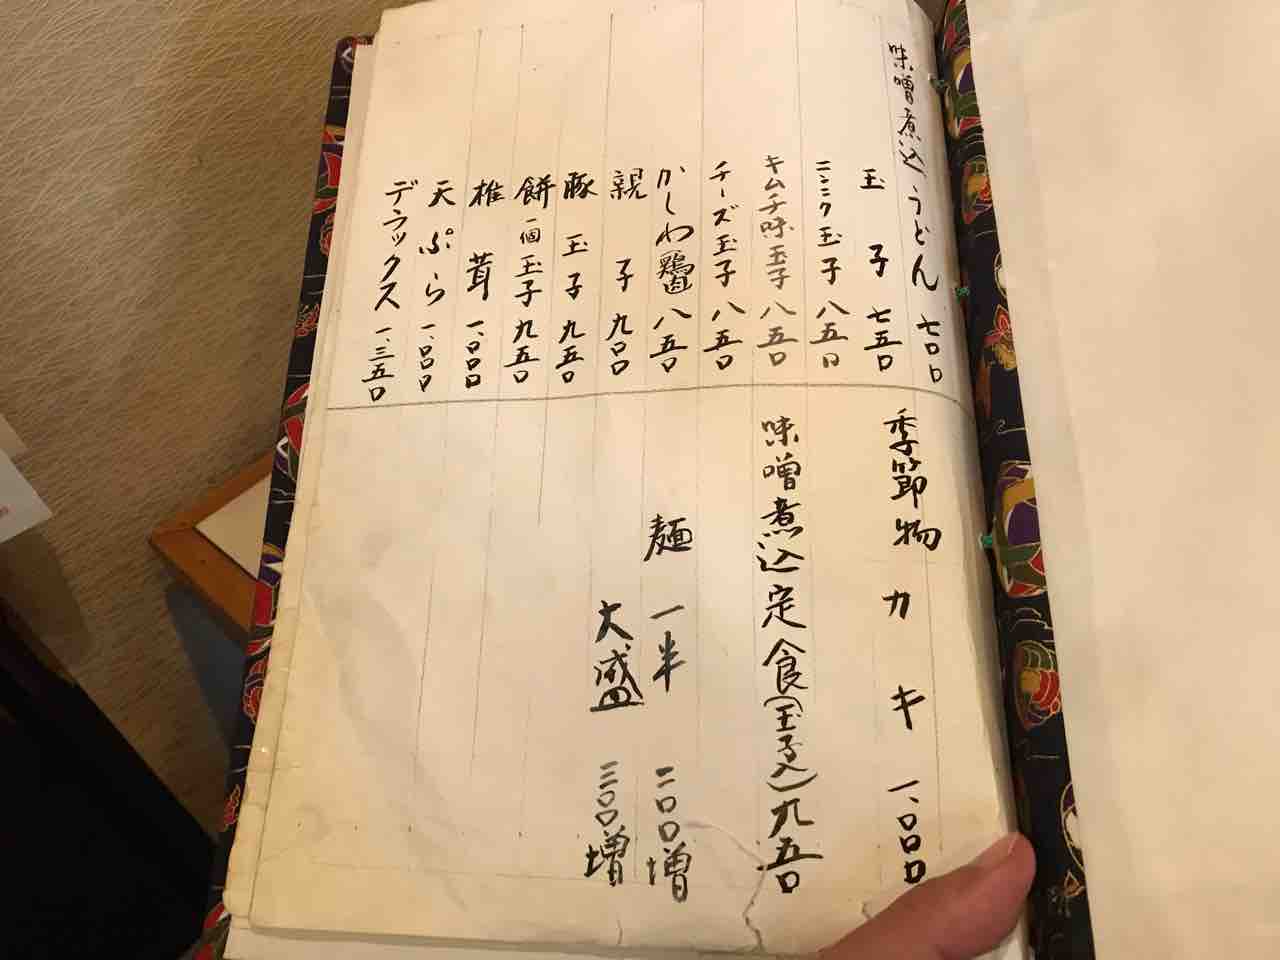 味噌煮込うどん 七〇〇
玉子 七五〇
ニンニク玉子 八五〇
キムチ味玉子 八五〇
チーズ玉子 八五〇
かしわ鶏肉 八五〇
親子 九〇〇
豚玉子 九五〇
餅一個玉子 九五〇
椎茸 一、〇〇〇
天ぷら 一、〇〇〇
デラックス 一、三五〇
季節物 カキ 一、〇〇〇
味噌煮込定食(玉子入) 九五〇
麺一半 二〇〇増
大盛 三〇〇増